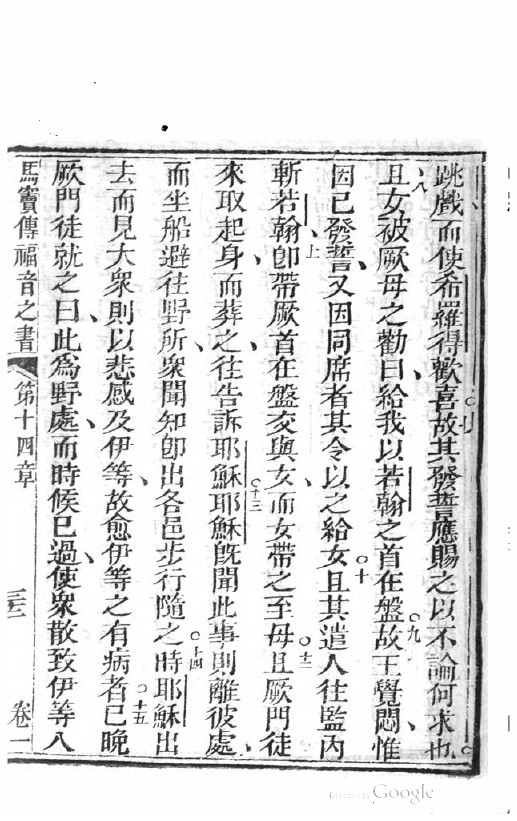 跳戲而使希羅得歡喜故其發誓應賜之以不論何求也
八
丑女被厥母之勸曰給我以若翰之首在盤故王覺悶惟
九
因已發誓又因同席者其令以之給女且其遣人往監內
十
斬若翰卽帶厥首在盤交與女而女帶之至母且厥門徒
十二
來取起身而葬之往告訴耶穌耶穌旣聞此事則離彼處
十三
而坐船避往野所衆聞知卽出各邑步行隨之時耶穌出
十四
去而見大衆則以悲感及伊等故愈伊等之有病者已晚
十五
厥門徒就之曰此爲野處而時候已過使衆散致伊等入
馬竇傳福音之書 第十四章 三二 卷一
Digitized by Google